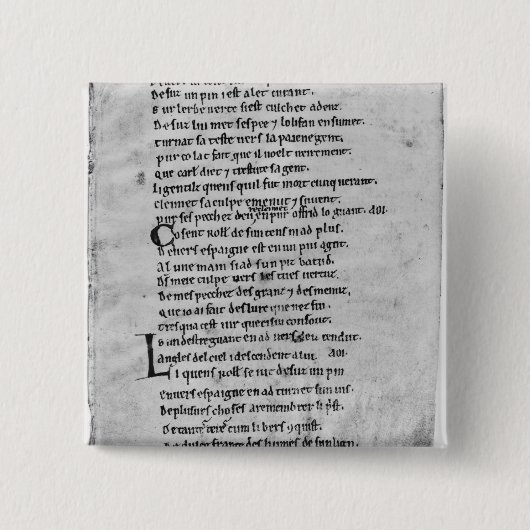 Desuz un pin i est alet curant.
Sur lerbe verte siest culchet adenz.
Desuz lui met sespee ⁊ lolifan ensumet.
Turnat sa teste vers la paiene gent.
pur co lat fait que il voelt veirement.
Que carl diet ⁊ trestute sa gent.
Li gentilz quens quil fut mort cunquerant.
cleimet sa culpe e menut ⁊ suvent.
pur ses pecchez deu en puroffrid lo guant. AOI.
Co sent Roll. de sun tens ni ad plus.
Devers espaigne est en un pui agut.
A lune main si ad sun piz batud.
Ds meie culpe vers les tues vertuz.
De mes pecchez des granz ⁊ des menuz.
Que io ai fait des lure que nez fui.
tresqua cest iur que ci sui consout.
Sun destre guant en ad vers deu tendut.
Angles del ciel i descendent a lui. AOI.
Li quens Roll. se iut desuz un pin
envers espaigne en ad turnet sun vis.
De plusurs choses a remembrer li pst.
De tantes teres cum li bers ɔquist.
De dulce france des humes de sun lign